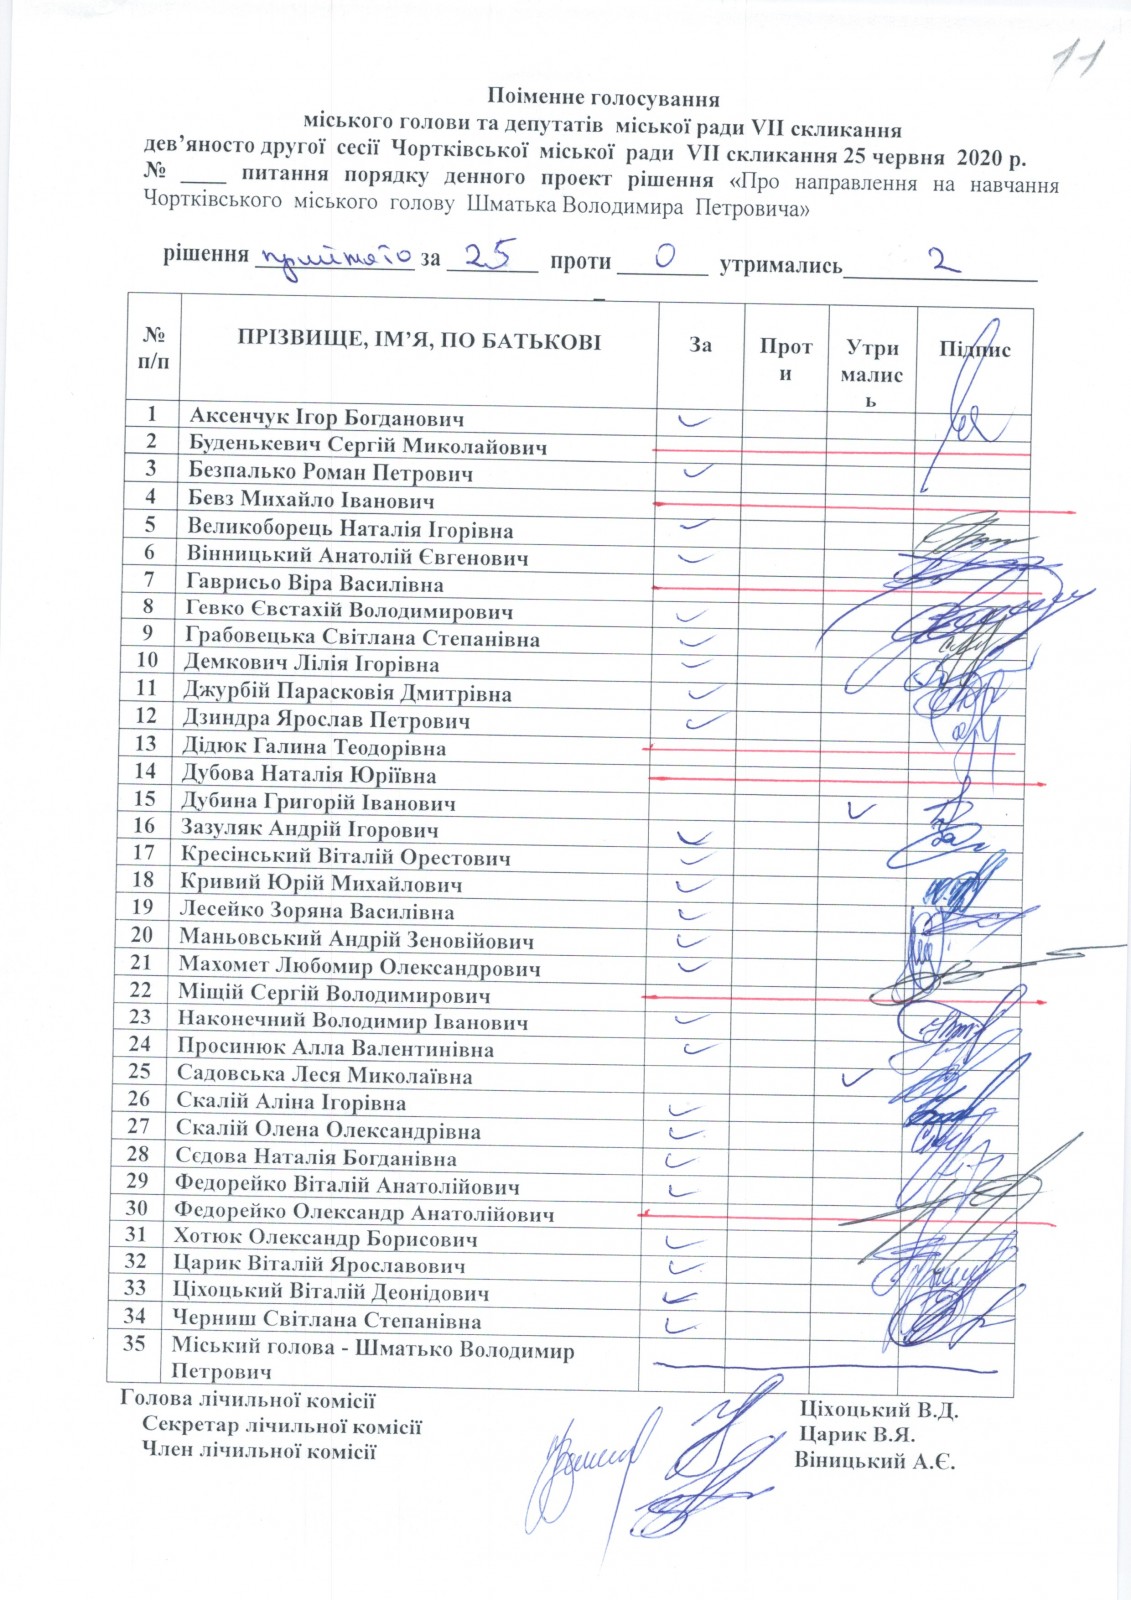 11
Поіменне голосування
міського голови та депутатів міської ради VII скликання
дев’яносто другої сесії Чортківської міської ради VII скликання 25 червня 2020 р.
№ ____ питання порядку денного проект рішення «Про направлення на навчання
Чортківського міського голову Шматька Володимира Петровича»
рішення прийнято за 25 проти 0 утримались 2
№ п/п ПРІЗВИЩЕ, ІМ’Я, ПО БАТЬКОВІ За Прот и Утри малис ь Підпис
1 Аксенчук Ігор Богданович
2 Буденькевич Сергій Миколайович
3 Безпалько Роман Петрович
4 Бевз Михайло Іванович
5 Великоборець Наталія Ігорівна
6 Вінницький Анатолій Євгенович
7 Гаврисьо Віра Василівна
8 Гевко Євстахій Володимирович
9 Грабовецька Світлана Степанівна
10 Демкович Лілія Ігорівна
11 Джурбій Парасковія Дмитрівна
12 Дзиндра Ярослав Петрович
13 Дідюк Галина Теодорівна
14 Дубова Наталія Юріївна
15 Дубина Григорій Іванович
16 Зазуляк Андрій Ігорович
17 Кресінський Віталій Орестович
18 Кривий Юрій Михайлович
19 Лесейко Зоряна Василівна
20 Маньовський Андрій Зеновійович
21 Махомет Любомир Олександрович
22 Міщій Сергій Володимирович
23 Наконечний Володимир Іванович
24 Просинюк Алла Валентинівна
25 Садовська Леся Миколаївна
26 Скалій Аліна Ігорівна
27 Скалій Олена Олександрівна
28 Сєдова Наталія Богданівна
29 Федорейко Віталій Анатолійович
30 Федорейко Олександр Анатолійович
31 Хотюк Олександр Борисович
32 Царик Віталій Ярославович
33 Ціхоцький Віталій Деонідович
34 Черниш Світлана Степанівна
35 Міський голова - Шматько Володимир
Петрович
Голова лічильної комісії Ціхоцький В.Д.
Секретар лічильної комісії Царик В.Я.
Член лічильної комісії Віницький А.Є.